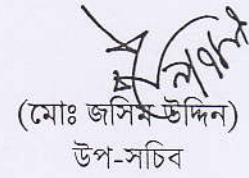 (মোঃ জসিম উদ্দিন)
উপ-সচিব